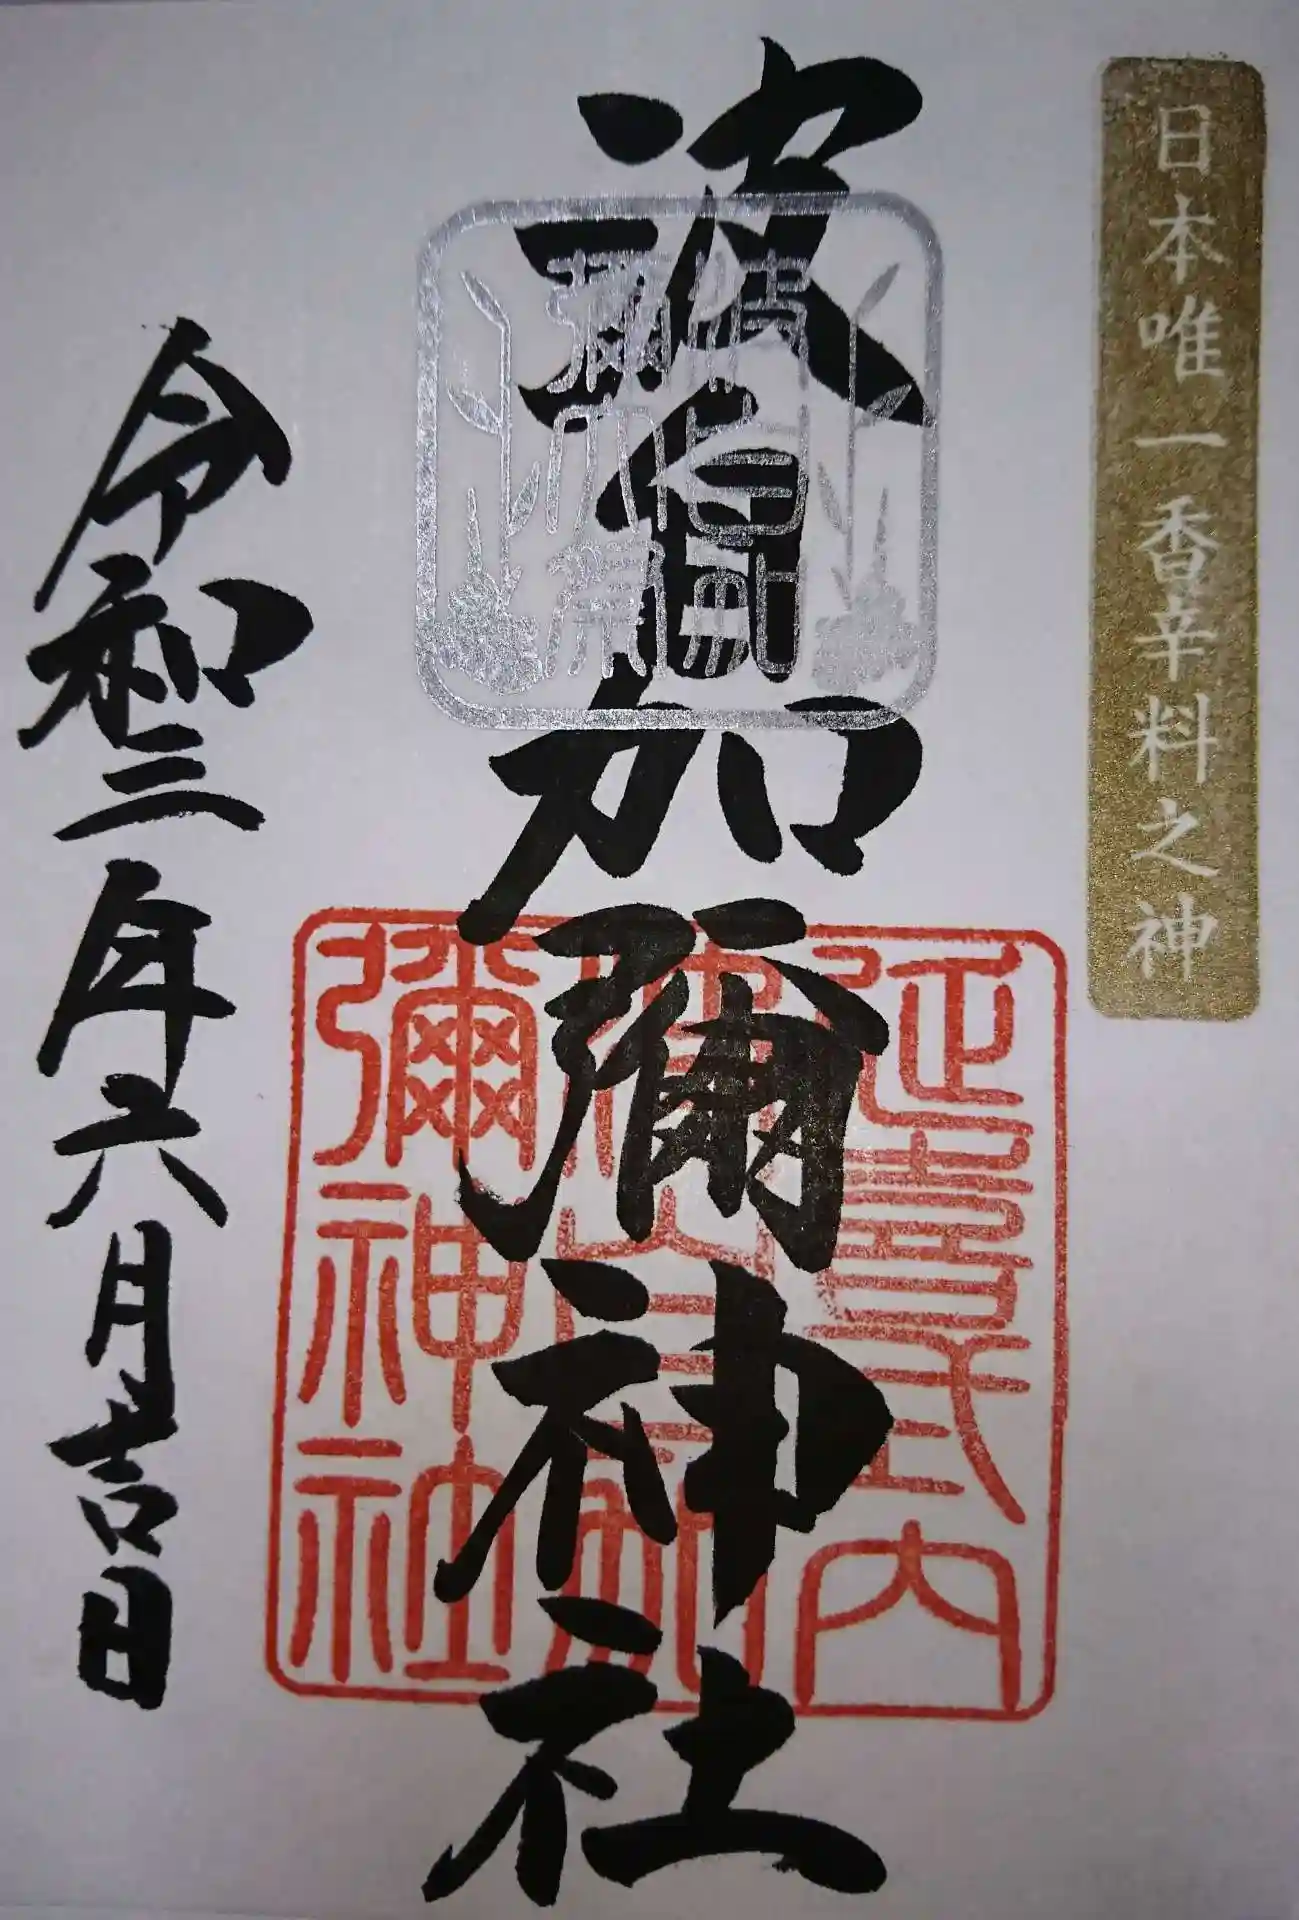 日本唯一香辛料之神
波自加彌神社
波自加
彌大祭
延喜式内
彌神社
令和三年六月吉日